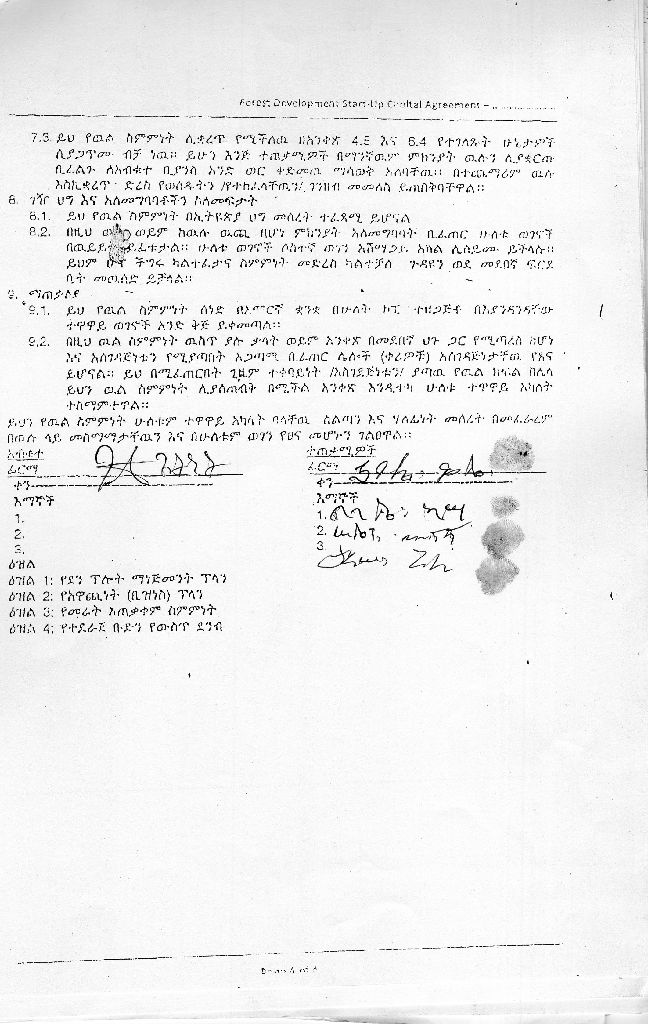 Forest Development Start-Up Capital Agreement –
7.3. ይህ የዉል ስምምነት ሊቋረጥ የሚችለዉ በአንቀጽ 4.5 እና 6.4 የተገለጹት ሁኔታዎች
ሲያጋጥሙ ብቻ ነዉ። ይሁን እንጅ ተጠቃሚዎች በማንኛዉም ምክንያት ዉሉን ሊያቋርጡ
ቢፈልጉ ለአብቁተ ቢያንስ አንድ ወር ቀድመዉ ማሳወቅ አለባቸዉ። በተጨማሪም ዉሉ
እስኪቋረጥ ድረስ የወሰዱትን /የተከፈላቸዉን/ ገንዘብ መመለስ ይጠበቅባቸዋል።
8. ገዥ ህግ እና አለመግባባቶችን ስለመፍታት
8.1. ይህ የዉል ስምምነት በኢትዮጵያ ህግ መሰረት ተፈጻሚ ይሆናል
8.2. በዚህ ወይም ከዉሉ ዉጪ በሆነ ምክንያት አለመግባባት ቢፈጠር ሁለቱ ወገኖች
በዉይይት ይፈቱታል። ሁለቱ ወገኖች ሶስተኛ ወገን አሸማጋይ አካል ሊሰይሙ ይችላሉ።
ይህም ሁኖ ችግሩ ካልተፈታና ስምምነት መድረስ ካልተቻለ ጉዳዩን ወደ መደበኛ ፍርድ
ቤት መዉሰድ ይቻላል።
9. ማጠቃለያ
9.1. ይህ የዉል ስምምነት ሰነድ በአማርኛ ቋንቋ በሁለት ኮፒ ተዘጋጅቶ በእያንዳንዳቸው
ተዋዋይ ወገኖች አንድ ቅጅ ይቀመጣል።
9.2. በዚህ ዉል ስምምነት ዉስጥ ያሉ ቃላት ወይም አንቀጽ በመደበኛ ህጉ ጋር የሚጣረስ ከሆነ
እና አስገዳጅነቱን የሚያጣበት አጋጣሚ ቢፈጠር ሌሎች (ቀሪዎቹ) አስገዳጅነታቸዉ የጸና
ይሆናል። ይህ በሚፈጠርበት ጊዜም ተቀባይነት /አስገዳጅነቱን/ ያጣዉ የዉል ክፍል በሌላ
ይህን ዉል ስምምነት ሊያስጠብቅ በሚችል አንቀጽ እንዲተካ ሁለቱ ተዋዋይ አካላት
ተስማምተዋል።
ይህን የዉል ስምምነት ሁለቱም ተዋዋይ አካላት ባላቸዉ ስልጣን እና ሃላፊነት መሰረት በመፈራረም
በዉሉ ላይ መስማማታቸዉን እና በሁለቱም ወገን የጸና መሆኑን ገልፀዋል።
አብቁተ
ፊርማ
ቀን
እማኞች
1.
2.
3.
ተጠቃሚዎች
ፊርማ
ቀን
እማኞች
1.
2.
3
ዕዝል
ዕዝል 1: የደን ፕሎት ማነጅመንት ፕላን
ዕዝል 2: የአዋጪነት (ቢዝነስ) ፕላን
ዕዝል 3: የመሬት አጠቃቀም ስምምነት
ዕዝል 4: የተደራጀ ቡድን የውስጥ ደንብ